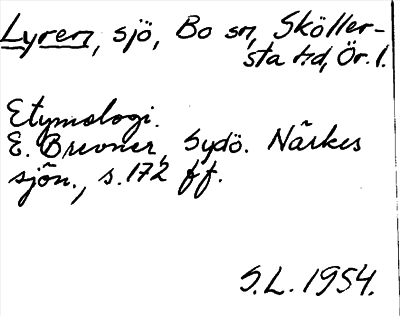 Lyren, sjö, Bo sn, Sköller-
sta hd, Ör. l.
Etymologi.
E. Brevner, Sydö. Närkes
sjön., s. 172 ff.
S.L. 1954.